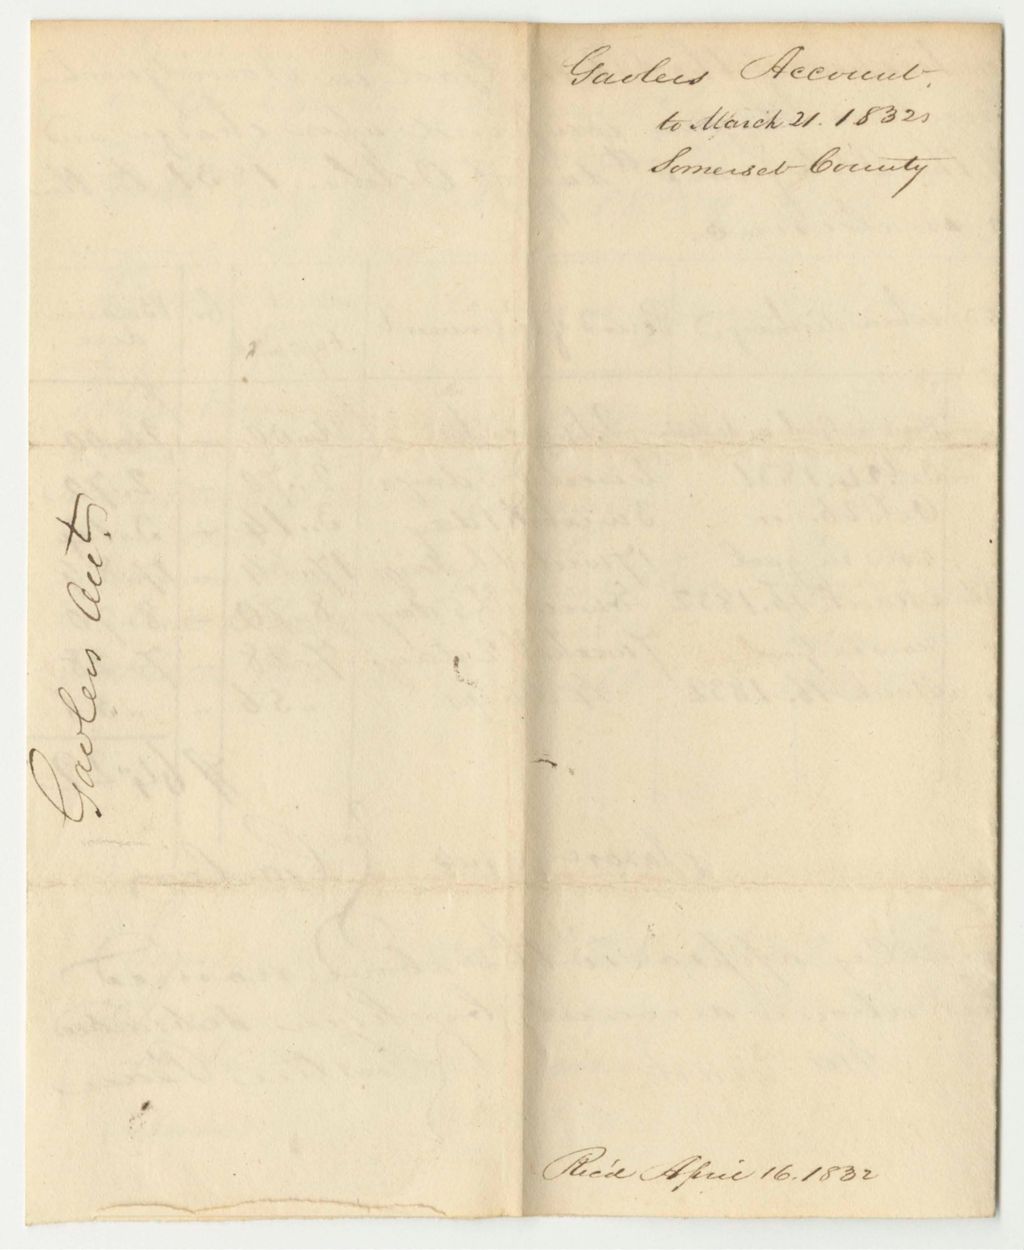 Gaolers Account
to March 21. 1832
Somerset County
Gaolers Acct.
Rec'd April 16. 1832